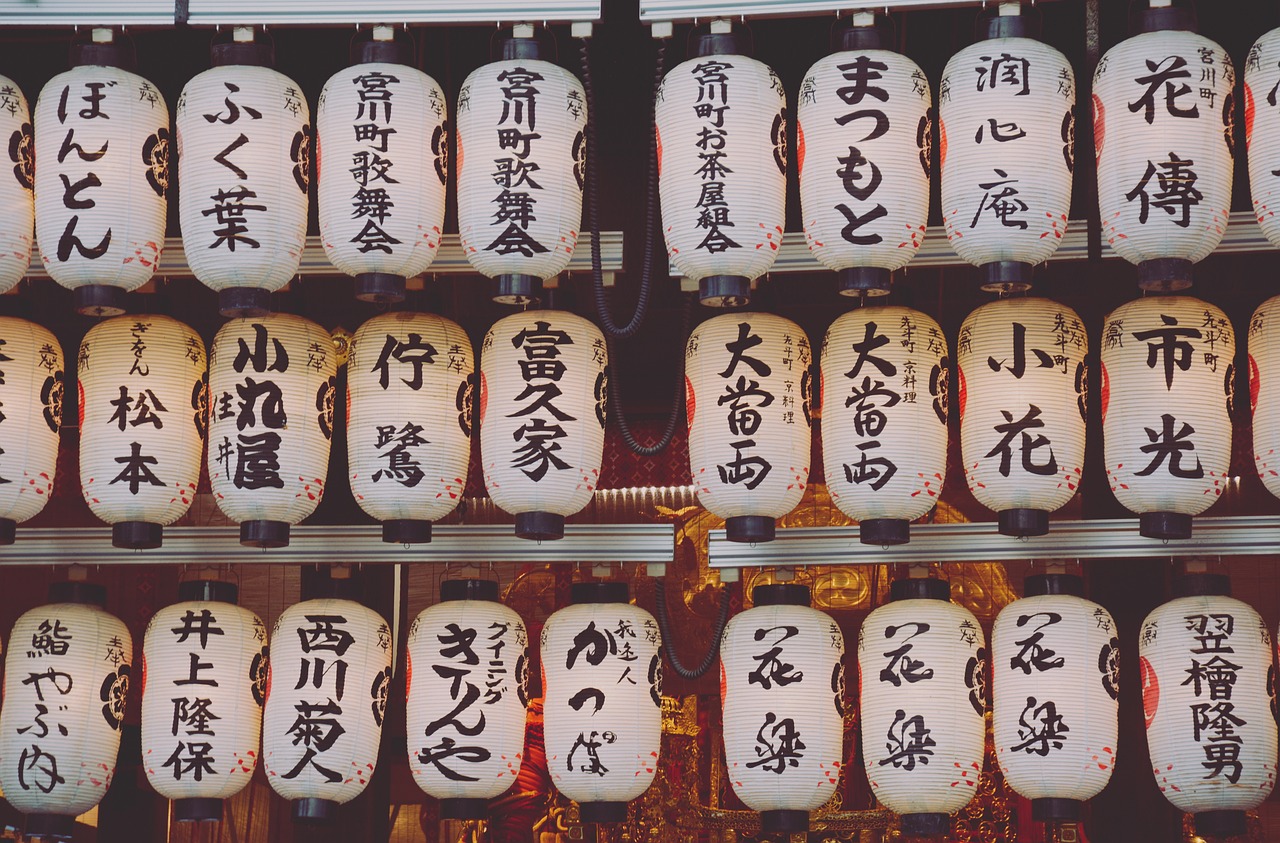 ぼんとん
ふく葉
宮川町歌舞会
宮川町歌舞会
宮川町お茶屋組合
まつもと
润心庵
宮川町
花傳
ぎをん
松本
小丸屋
住井
佇鷺
富久家
先斗町 京料理
大當両
先斗町 京料理
大當両
先斗町
小花
先斗町
市光
鮨やぶ内
井上隆保
西川菊人
ダイニング
きりんや
かつ
花梁
花梁
花梁
翌檜隆男